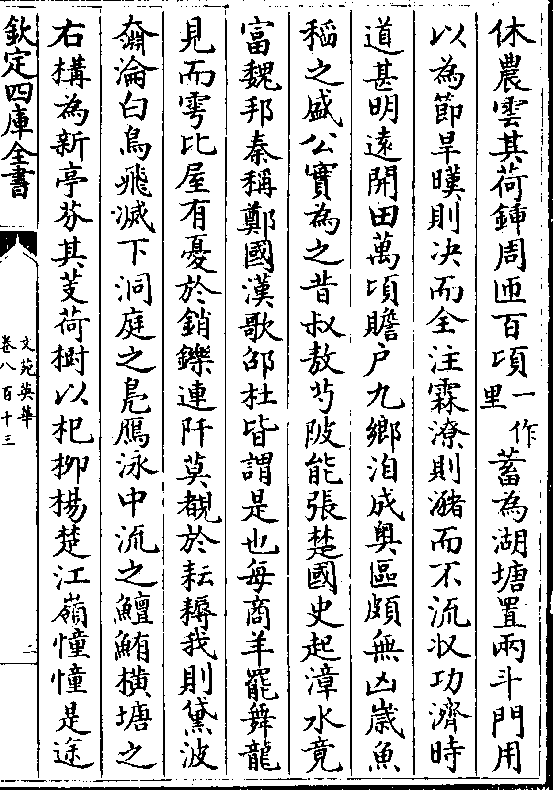 休農雲其荷鍾周匝百頃一作里蓄為湖塘置兩斗門用
以為節旱暵則決而全注霖潦則瀦而不流收功濟時
道甚明遠開田萬頃贍户九鄉洎成奥區頗無凶嵗魚
稻之盛公實為之昔叔敖芍陂能張楚國史起漳水竟
富魏邦秦稱鄭國漢歌邵杜皆謂是也每商羊罷舞龍
見而雩比屋有憂於銷鑠連阡莫覩於耘耨我則黛波
奫淪白鳥飛滅下洞庭之鳧鴈泳中流之鱣鮪横塘之
右構為新亭芬其芰荷樹以杞栁楊楚江嶺憧憧是途
欽定四庫全書
文苑英華
卷八百十三
二